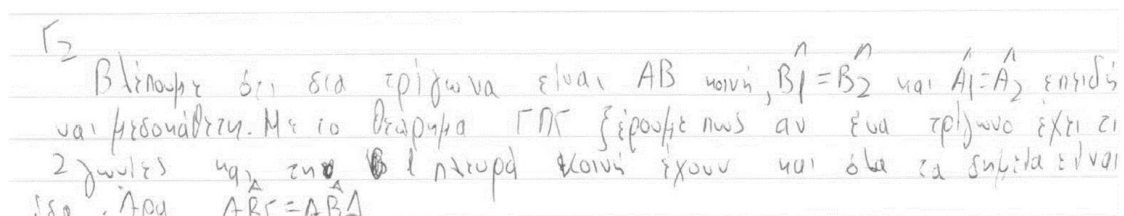 Γ2
Βλέπουμε ότι δια τρίγωνα είναι ΑΒ κοινή, B̂1=B̂2 και Â1=Â2 επειδή
ναι μεσοκάθετη. Με το θεώρημα ΓΠΓ ξέρουμε πως αν ένα τρίγωνο έχει τι
2 γωνίες και την 1 πλευρά κοινή έχουν και όλα τα σημεία είναι
ίσα. Άρα ΑB̂Γ=ΑB̂Δ